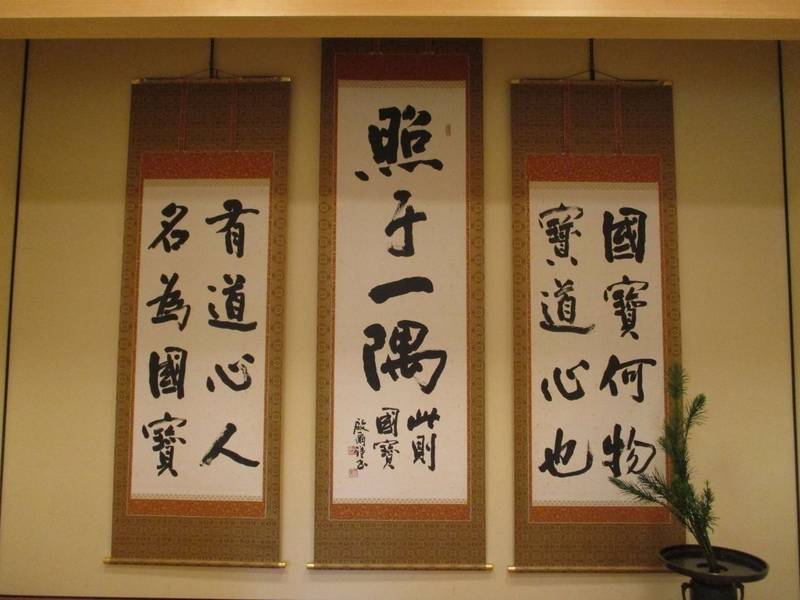 國寶何物
寶道心也
有道心人
名為國寶
照于一隅
此則
國寶